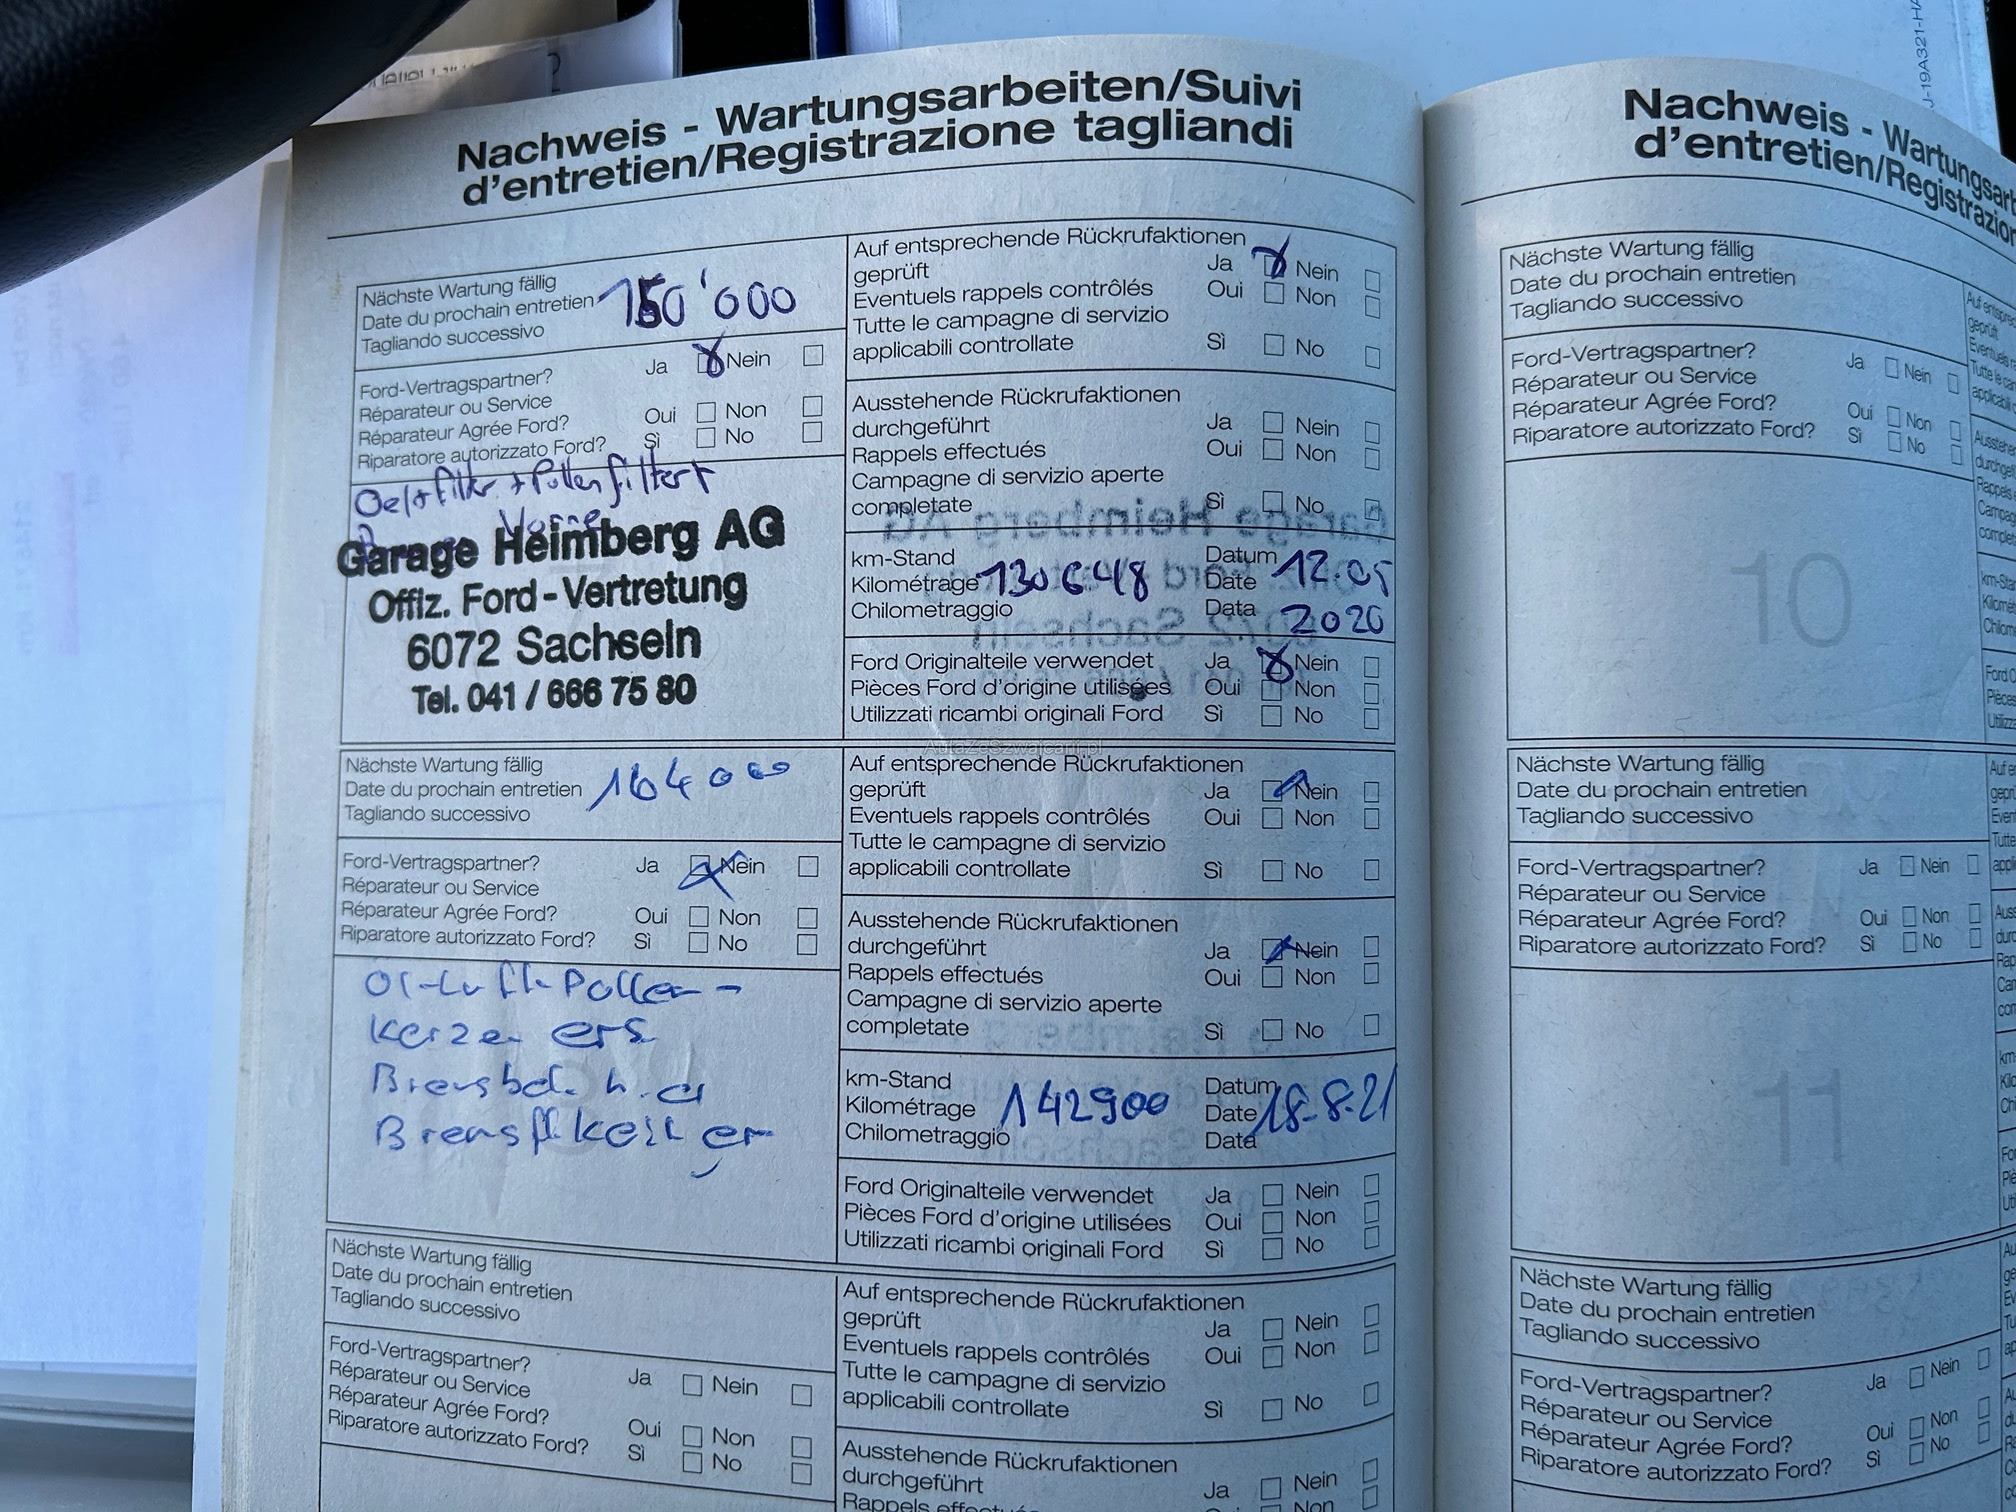 Nachweis - Wartungsarbeiten/Suivi
d'entretien/Registrazione tagliandi
Nächste Wartung fällig
Date du prochain entretien 150'000
Tagliando successivo
Ford-Vertragspartner? Ja Nein
Réparateur ou Service
Réparateur Agrée Ford? Oui Non
Riparatore autorizzato Ford? Sì No
Oel+filter + Pollenfiltert
Vorne
Garage Heimberg AG
Offiz. Ford-Vertretung
6072 Sachseln
Tel. 041 / 666 75 80
Auf entsprechende Rückrufaktionen
geprüft Ja Nein
Eventuels rappels contrôlés Oui Non
Tutte le campagne di servizio
applicabili controllate Sì No
Ausstehende Rückrufaktionen
durchgeführt Ja Nein
Rappels effectués Oui Non
Campagne di servizio aperte
completate Sì No
km-Stand Datum
Kilométrage 130648 Date 12.05
Chilometraggio Data 2020
Ford Originalteile verwendet Ja Nein
Pièces Ford d'origine utilisées Oui Non
Utilizzati ricambi originali Ford Sì No
AutaZeSzwajcarii.pl
Nächste Wartung fällig
Date du prochain entretien 164000
Tagliando successivo
Ford-Vertragspartner? Ja Nein
Réparateur ou Service
Réparateur Agrée Ford? Oui Non
Riparatore autorizzato Ford? Sì No
Öl-Luft-Pollen-
Kerzen ers
Bremsbel. h.
Auf entsprechende Rückrufaktionen
geprüft Ja Nein
Eventuels rappels contrôlés Oui Non
Tutte le campagne di servizio
applicabili controllate Sì No
Ausstehende Rückrufaktionen
durchgeführt Ja Nein
Rappels effectués Oui Non
Campagne di servizio aperte
completate Sì No
km-Stand Datum
Kilométrage 142900 Date 18.8.21
Chilometraggio Data
Ford Originalteile verwendet Ja Nein
Pièces Ford d'origine utilisées Oui Non
Utilizzati ricambi originali Ford Sì No
Nächste Wartung fällig
Date du prochain entretien
Tagliando successivo
Ford-Vertragspartner? Ja Nein
Réparateur ou Service
Réparateur Agrée Ford? Oui Non
Riparatore autorizzato Ford? Sì No
Auf entsprechende Rückrufaktionen
geprüft Ja Nein
Eventuels rappels contrôlés Oui Non
Tutte le campagne di servizio
applicabili controllate Sì No
Ausstehende Rückrufaktionen
durchgeführt Ja Nein
Rappels Non
Nachweis - Wartungsar
d'entretien/Registrazion
Nächste Wartung fällig
Date du prochain entretien
Tagliando successivo
Ford-Vertragspartner? Ja Nein
Réparateur ou Service
Réparateur Agrée Ford? Oui Non
Riparatore autorizzato Ford? Sì No
10
Nächste Wartung fällig
Date du prochain entretien
Tagliando successivo
Ford-Vertragspartner? Ja Nein
Réparateur ou Service
Réparateur Agrée Ford? Oui Non
Riparatore autorizzato Ford? Sì No
11
Nächste Wartung fällig
Date du prochain entretien
Tagliando successivo
Ford-Vertragspartner? Ja Nein
Réparateur ou Service
Réparateur Agrée Ford? Oui Non
Riparatore autorizzato Ford? Sì No
J-19A321-HA